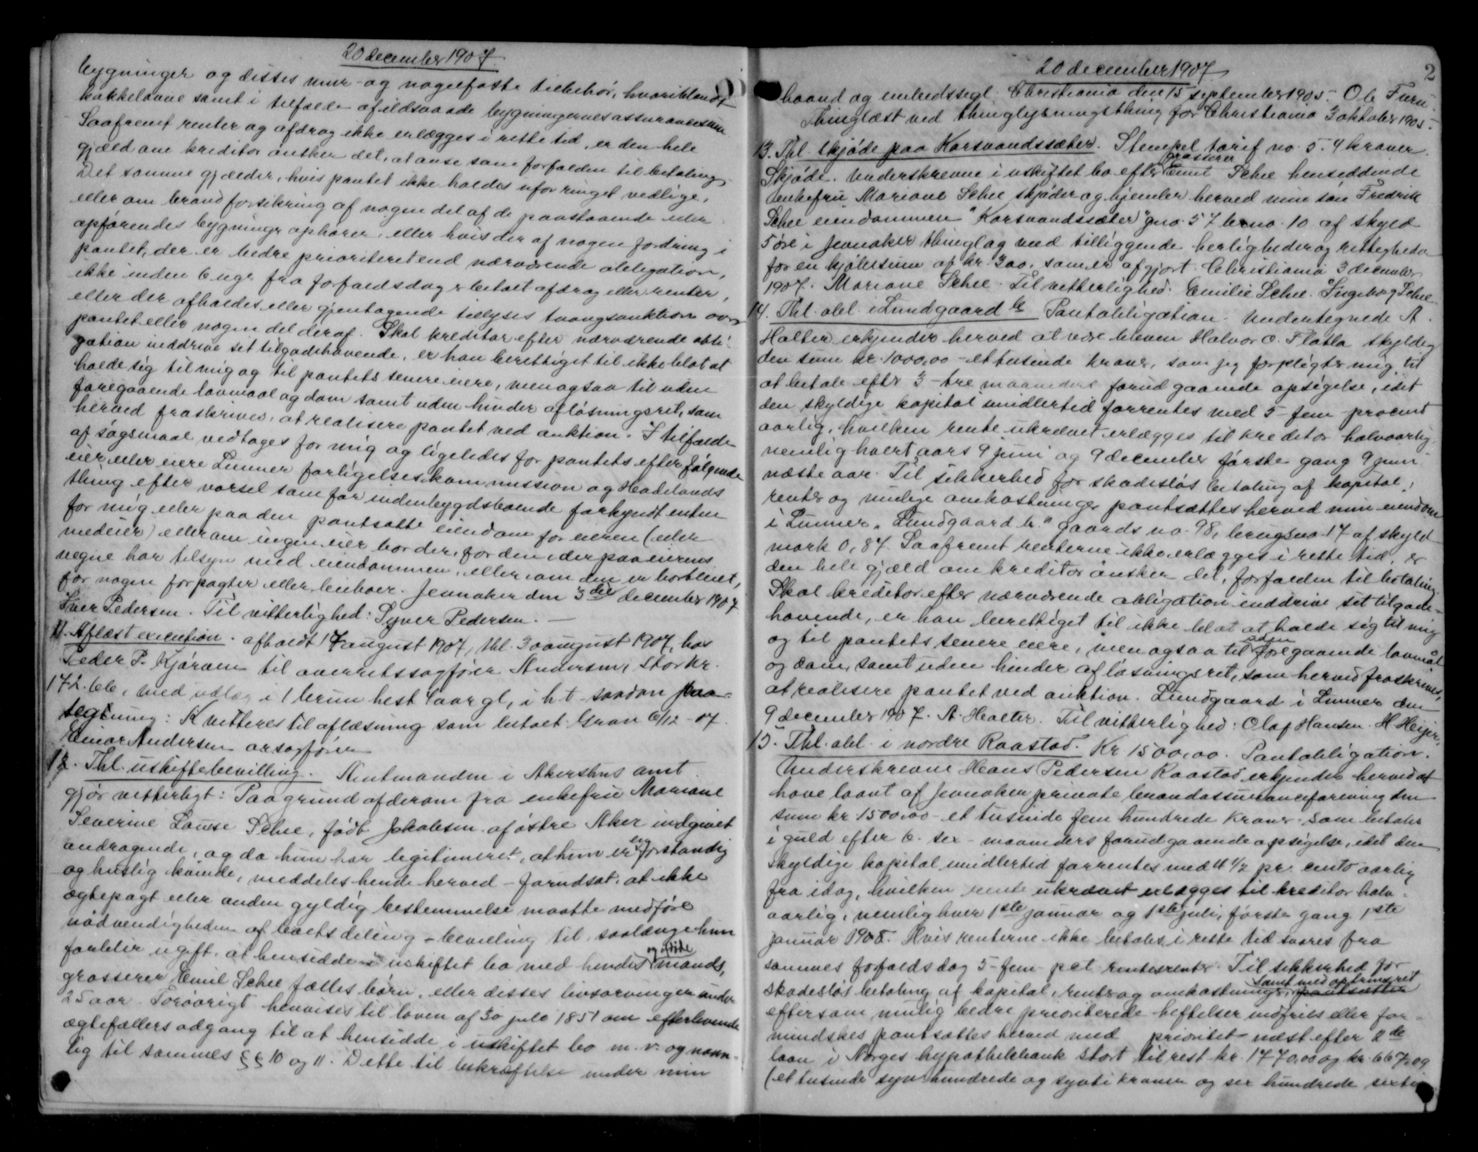 20 december 1907.
bygninger og disses mur- og nagelfaste tilbehör, hvoriblandt
kakkelovne samt i tilfælde af ildsvaade bygningernes assurancesum
Saafremt renter og afdrag ikke erlægges i rette tid, er den hele
gjæld om kreditor önsker det, at anse som forfalden til betaling.
Det samme gjælder, hvis pantet ikke holdes uforringet vedlige,
eller om brandforsikring af nogen del af de paastaaende eller
opförendes bygninger ophører eller hvis der af nogen fordring i
pantet, der er bedre prioriteret end nærværende obligation,
ikke inden 6 uger fra forfaldsdag er betalt afdrag eller renter,
eller der afholdes eller gjentagende tillyses tvangsauktion over
pantet eller nogen del deraf. Skal kreditor efter nærværende obli-
gation inddrive sit tilgodehavende, er han berettiget til ikke blot at
holde sig til mig og til pantets senere eiere, men ogsaa til uden
foregaaende lovmaal og dom samt uden hinder af løsningsret, som
herved fraskrives, at realisere pantet ved auktion. I tilfælde
af sögsmaal vedtages for mig og ligeledes for pantets efterfölgende
eier eller eiere Lunner forligelseskommission og Hadelands
thing efter varsel som for indenbygdsboende forkyndt enten
for mig eller paa den pantsatte eiendom for eieren (eller
medeier) eller om ingen eier bor der, for den, der paa eierens
vegne har tilsyn med eiendommen, eller om den er bortleiet,
for nogen forpagter eller leieboer. Jevnaker den 3die december 1907
Iver Pedersen. Til vitterlighed: Syver Pedersen.
11. Aflæst execution. afholdt 17 august 1907, thl. 30 august 1907, hos
Peder P. Kjörven til overretssagförer Andersen, stor kr.
172.66, med udlæg i 1 brun hest 6 aar gl, i h t saadan paa-
tegning: Kvitteres til aflæsning som betalt. Gran 6/12 - 07.
Einar Andersen orsagförer
12. Thl. uskiftebevilling. Amtmanden i Akershus amt
gjör vitterligt: Paa grund af derom fra enkefru Mariane
Severine Louise Schee, födt Jakobsen af östre Aker indgivet
andragende, og da hun har legitimeret, at hun er en forstandig
og huslig kvinde, meddeles hende herved - forudsat at ikke
ægtepagt eller anden gyldig bestemmelse maatte medföre
nödvendigheden af boets deling - bevilling til, saalænge hun
forbliver ugift, at hensidde i uskiftet bo med hendes og afdöde mands,
grosserer Emil Schee fælles börn, eller disses livsarvinger under
25 aar. Forövrigt henvises til loven af 30 juli 1851 om efterlevende
ægtefællers adgang til at hensidde i uskiftet bo m. v. og navn-
lig til sammes §§ 10 og 11. Dette til bekræftelse under min
20 december 1907
2
haand og embedssegl. Christiania den 15 september 1905. O. b. Furu.
Thinglæst ved thinglysningsthing for Christiania 3 oktober 1905.
13. Thl. skjöde paa Korsvandssæter. Stempel tarif no 5 - 4 kroner.
Skjöde. Underskrevne i uskiftet bo efter grosserer Emil Schee hensiddende
enkefru Mariane Schee skjöder og hjemler herved min sön Fredrik
Schee eiendommen "Korsvandssæter" gno. 57 brno. 10 af skyld
5 öre i Jevnaker thinglag med tilliggende herligheder og rettigheder
for en kjöbesum af kr. 300, som er afgjort. Christiania 3 december
1907. Mariane Schee. Til vitterlighed: Emilie Schee. Ingeborg Schee
14. Thl. obl. i Lundgaard br Pantobligation. Undertegnede A.
Halter erkjender herved at være bleven Halvor O. Flatla skyldig
den sum kr 1000,00 - et tusinde kroner, som jeg forpligter mig til
at betale efter 3 - tre maaneders forudgaaende opsigelse, idet
den skyldige kapital imidlertid forrentes med 5 - fem - procent
aarlig, hvilken rente ukrævet erlægges til kreditor halvaarlig
nemlig hvert aars 9 juni og 9 december förste gang 9 juni
næste aar. Til sikkerhed for skadeslös betaling af kapital,
renter og mulige omkostninger pantsættes herved min eiendom
i Lunner, "Lundgaard br." gaards no. 98, brugsno 17 af skyld
mark 0,84. Saafremt renterne ikke erlægges i rette tid, er
den hele gjæld om kreditor önsker det, forfalden til betaling.
Skal kreditor efter nærværende obligation inddrive sit tilgode-
havende, er han berettiget til ikke blot at holde sig til mig
og til pantets senere eiere, men ogsaa til uden foregaaende lovmål
og dom, samt uden hinder af lösningsret, som herved fraskrives,
at realisere pantet ved auktion. Lundgaard i Lunner den
9 december 1907. A. Halter. Til vitterlighed: Olaf Hansen. H Heijer.
15. Thl. obl. i nordre Raastad. Kr 1500,00. Pantobligation.
Underskrevne Hans Pedersen Raastad erkjender herved at
have laant af Jevnaker private brandassuranceforening den
sum kr 1500.00 - et tusinde fem hundrede kroner som betales
i guld efter 6 - sex - maaneders forudgaaende opsigelse, idet den
skyldige kapital imidlertid forrentes med 4 1/2 pr. cento aarlig
fra idag, hvilken rente ukrævet erlægges til kreditor halv-
aarlig, nemlig hver 1ste januar og 1ste juli, förste gang 1ste
januar 1908. Hvis renterne ikke betales i rette tid svares fra
sammes forfaldsdag 5 - fem - pct. rentesrenter. Til sikkerhed for
skadeslös betaling af kapital, renter og omkostninger, samt med optrinsret
eftersom mulig bedre prioriterede heftelser indfries eller for-
mindskes pantsættes herved med prioritet næst efter 2de
laan i Norges hypothekbank stort til rest kr. 1770.00 og kr. 667.09
(et tusinde syv hundrede og sytti kroner og sex hundrede sexti